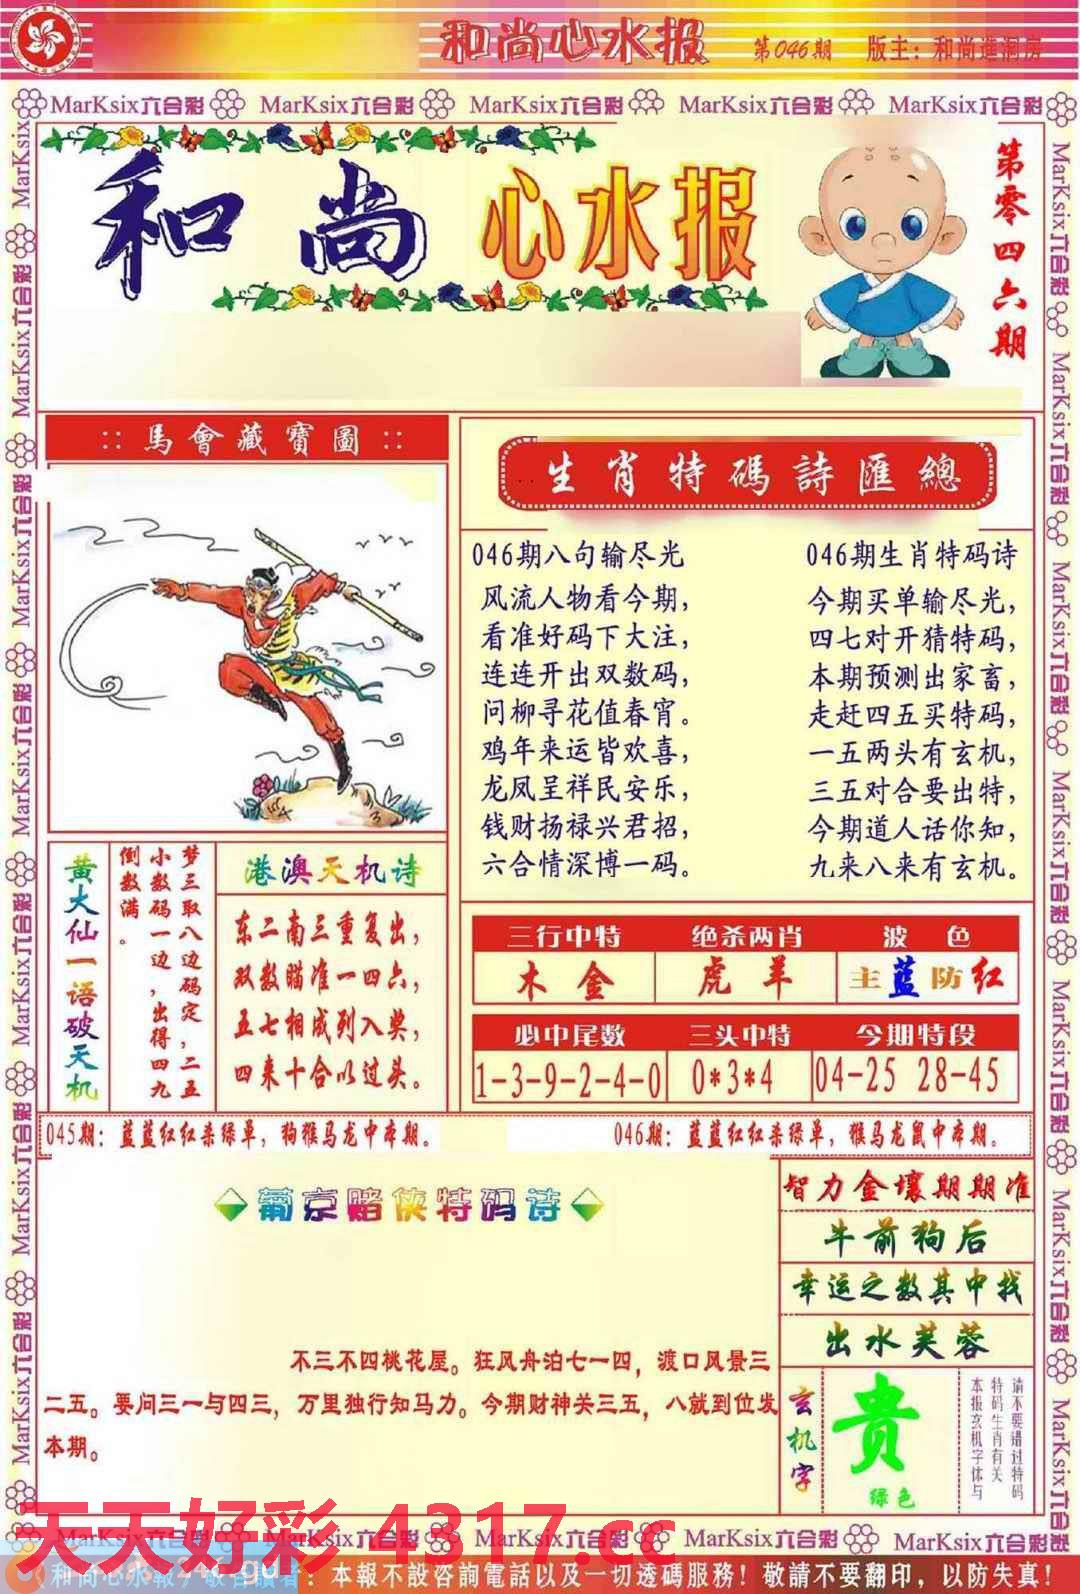 和尚心水报 第046期 版主：和尚進洞房
MarKsix六合彩 MarKsix六合彩 MarKsix六合彩 MarKsix六合彩 MarKsix六合彩
和尚心水报
第零四六期
::馬會藏寶圖::
生肖特碼詩匯總
046期八句输尽光
风流人物看今期，
看准好码下大注，
连连开出双数码，
问柳寻花值春宵。
鸡年来运皆欢喜，
龙凤呈祥民安乐，
钱财扬禄兴君招，
六合情深博一码。
046期生肖特码诗
今期买单输尽光，
四七对开猜特码，
本期预测出家畜，
走赶四五买特码，
一五两头有玄机，
三五对合要出特，
今期道人话你知，
九来八来有玄机。
黄大仙一语破天机
梦三取八边码定，二五
小数码一边，出得四九
倒数满。
港澳天机诗
东二南三重复出，
双数瞄准一四六，
五七相成列入奖，
四来十合以过头。
三行中特 绝杀两肖 波色
木金 虎羊 主蓝防红
必中尾数 三头中特 今期特段
1-3-9-2-4-0 0*3*4 04-25 28-45
045期：蓝蓝红红杀绿单，狗猴马龙中本期。
046期：蓝蓝红红杀绿单，猴马龙鼠中本期。
葡京赌侠特码诗
不三不四桃花屋。狂风舟泊七一四，渡口风景三
二五。要问三一与四三，万里独行知马力。今期财神关三五，八就到位发
本期。
智力金壤期期准
牛前狗后
幸运之数其中找
出水芙蓉
玄机字
贵
绿色
请不要错过特码
特码生肖有关
本报玄机字体与
天天好彩 4317.cc
MarKsix六合彩 MarKsix六合彩 MarKsix六合彩 MarKsix六合彩 MarKsix六合彩
：本報不設咨詢電話以及一切透碼服務！敬請不要翻印，以防失真！